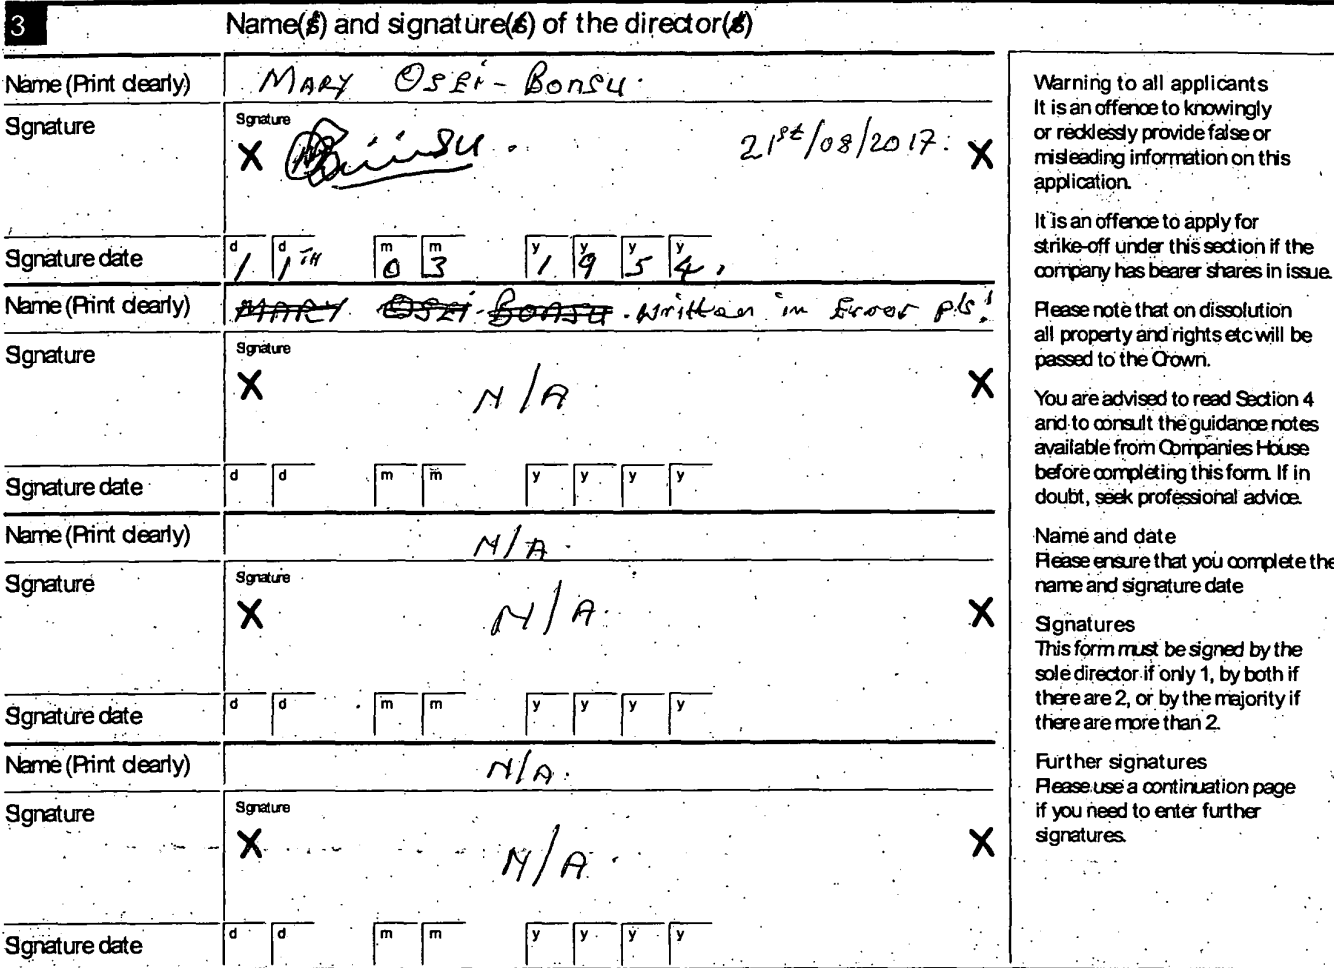 3 Name(s) and signature(s) of the director(s)
Name (Print clearly) MARY OSEI-BONSU.
Signature
Signature
X 21st/08/2017. X
Signature date d d m m y y y y
1 1TH 0 3 1 9 5 4.
Name (Print clearly) MARY OSEI-BONSU. Written in Error pls!
Signature
Signature
X N/A X
Signature date d d m m y y y y
Name (Print clearly) N/A.
Signature
Signature
X N/A. X
Signature date d d m m y y y y
Name (Print clearly) N/A.
Signature
Signature
X N/A. X
Signature date d d m m y y y y
Warning to all applicants
It is an offence to knowingly
or recklessly provide false or
misleading information on this
application.
It is an offence to apply for
strike-off under this section if the
company has bearer shares in issue.
Please note that on dissolution
all property and rights etc will be
passed to the Crown.
You are advised to read Section 4
and to consult the guidance notes
available from Companies House
before completing this form. If in
doubt, seek professional advice.
Name and date
Please ensure that you complete the
name and signature date
Signatures
This form must be signed by the
sole director if only 1, by both if
there are 2, or by the majority if
there are more than 2.
Further signatures
Please use a continuation page
if you need to enter further
signatures.